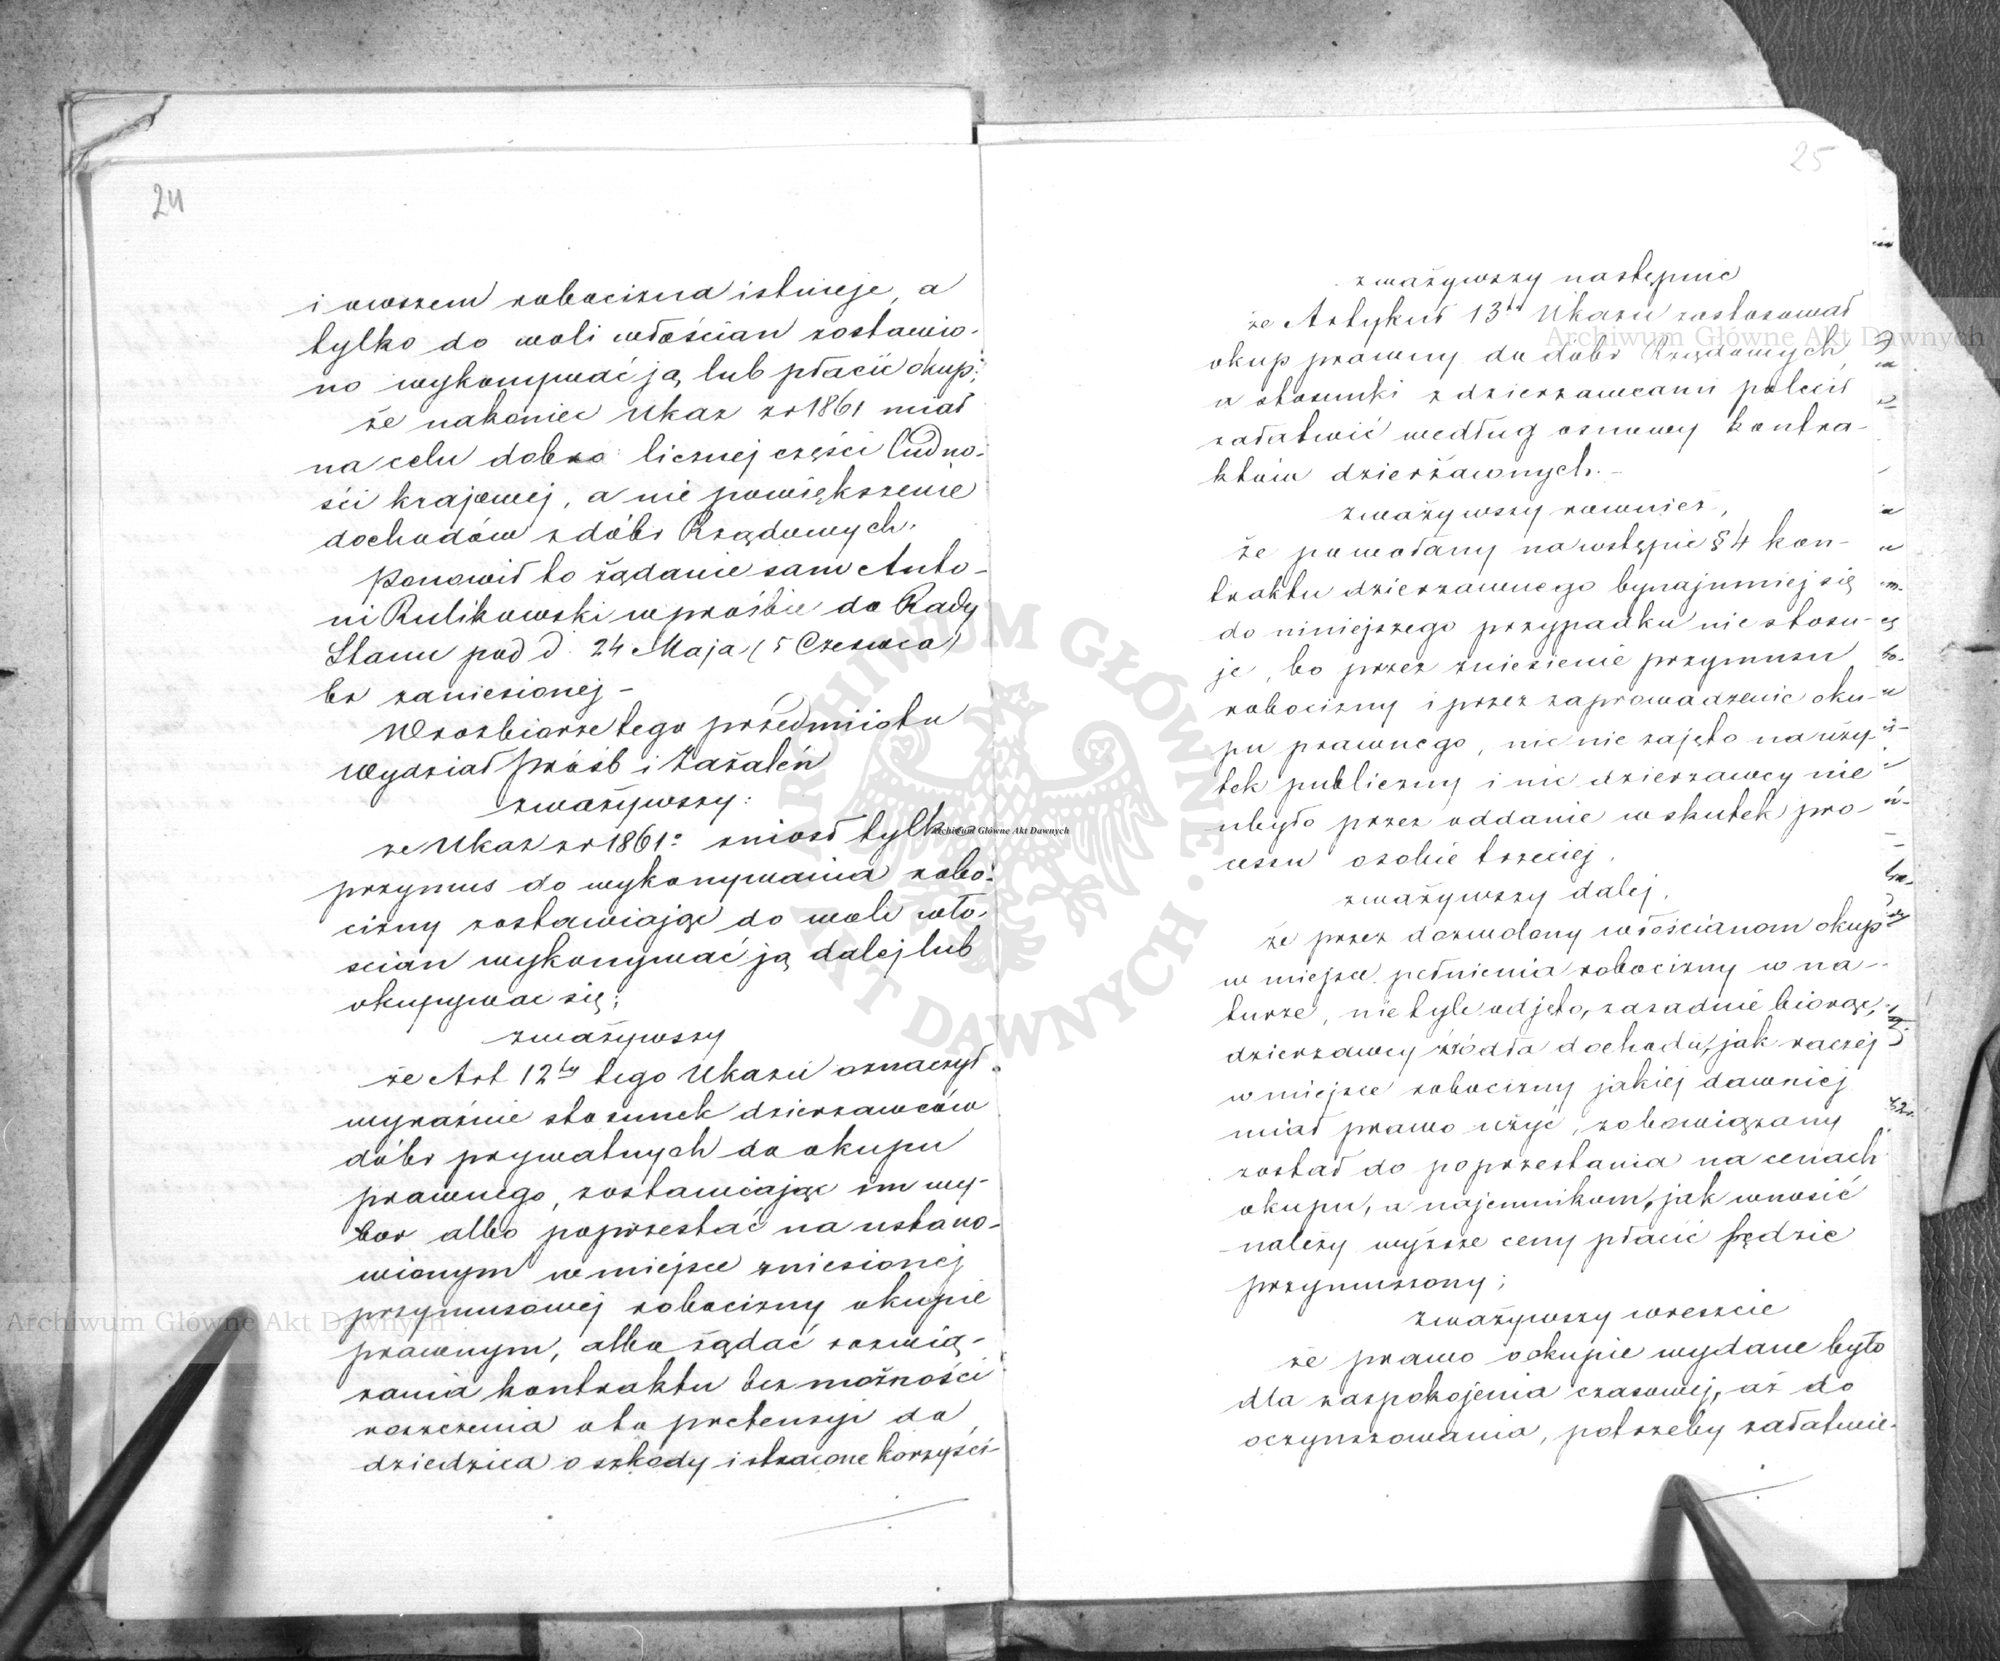 24
i owszem robocizna istnieje, a
tylko do woli włościan zostawio-
no wykonywać ją lub płacić okup;
że nakoniec Ukaz zr 1861 miał
na celu dobro licznej części ludno-
ści krajowej, a nie powiększenie
dochodów z dóbr Rządowych.
Ponowił to żądanie sam Anto-
ni Rulikowski w prośbie do Rady
Stanu pod d. 24 Maja (5 Czerwca)
br zaniesionej –
W rozbiorze tego przedmiotu
Wydział Próśb i Zażaleń
zważywszy:
że Ukaz zr 1861: zniosł tylko
przymus do wykonywania robo-
cizny zostawiając do woli wło-
ścian wykonywać ją dalej lub
okupywac się;
zważywszy
że Art 12ty tego Ukazu oznaczył
wyraźnie stosunek dzierzawców
dóbr prywatnych do okupu
prawnego, zostawiając im wy-
bor albo poprzestać na ustano-
wionym w miejsce zniesionej
przymusowej robocizny okupie
prawnym, albo żądać rozwią-
zania kontraktu bez możności
roszczenia oto pretensyi do
dziedzica o szkody i stracone korzyści
25
zważywszy następnie
że Artykuł 13ty Ukazu zastosował
okup prawny do dobr Rządowych,
a stosunki z dzierzawcami polecił
załatwić według osnowy kontra-
któw dzierżawnych. –
zważywszy rownież,
że powołany na wstępie § 4 kon-
traktu dzierzawnego bynajmniej się
do niniejszego przypadku nie stosu-
je, bo przez zniesienie przymusu
robocizny i przez zaprowadzenie oku-
pu prawnego, nic nie zajęto na uży-
tek publiczny i nic dzierzawcy nie
ubyło przez oddanie w skutek pro-
cesu osobie trzeciej.
zważywszy dalej,
że przez dozwolony włościanom okup
w miejsce pełnienia robocizny w na-
turze, nie tyle odjęto, zasadnie biorąc,
dzierzawcy źródła dochodu, jak raczej
w miejsce robocizny jakiej dawniej
miał prawo użyć, zobowiązany
został do poprzestania na cenach
okupu, a najemnikom, jak wnosić
należy wyższe ceny płacić będzie
przymuszony;
zważywszy wreszcie
że prawo o okupie wydane było
dla zaspokojenia czasowej, aż do
oczynszowania, potrzeby załatwie-
Archiwum Główne Akt Dawnych
Archiwum Główne Akt Dawnych
Archiwum Główne Akt Dawnych
ARCHIWUM GŁÓWNE AKT DAWNYCH